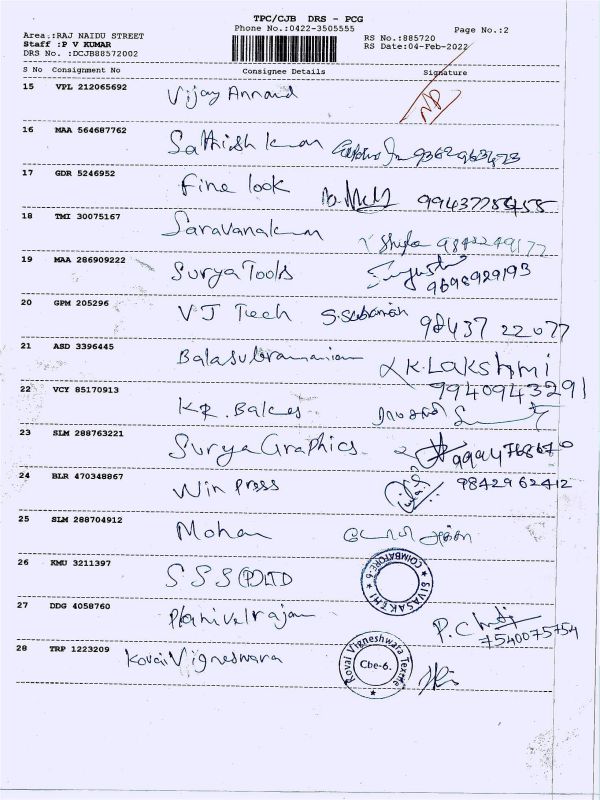 TPC/CJB DRS - PCG
Phone No.:0422-3505555
Page No.:2
Area.:RAJ NAIDU STREET
Staff :P V KUMAR
DRS No. :DCJB88572002
RS No.:885720
RS Date:04-Feb-2022
S No Consignment No Consignee Details Signature
15 VPL 212065692 Vijay Annand NP
16 MAA 564687762 Sathish kumar 9362963473
17 GDR 5246952 Fine look
18 TMI 30075167 Saravanakumar 9842249177
19 MAA 286909222 Surya Tools 9698929193
20 GPM 205296 VJ Tech 98437 22077
21 ASD 3396445 Balasubramaniam K.LAKSHMI
9940943291
22 VCY 85170913 KR.
23 SLM 288763221 Surya Graphics.
24 BLR 470348867 Win press 9842962412
25 SLM 288704912 Mohan
26 KMU 3211397 SSS (P) LTD SIVASAKTHI COIMBATORE-6
27 DDG 4058760 Planivelrajan P.C
7540075754
28 TRP 1223209 Kovai Vigneswara Kovai Vigneshwara Textile Cbe-6.